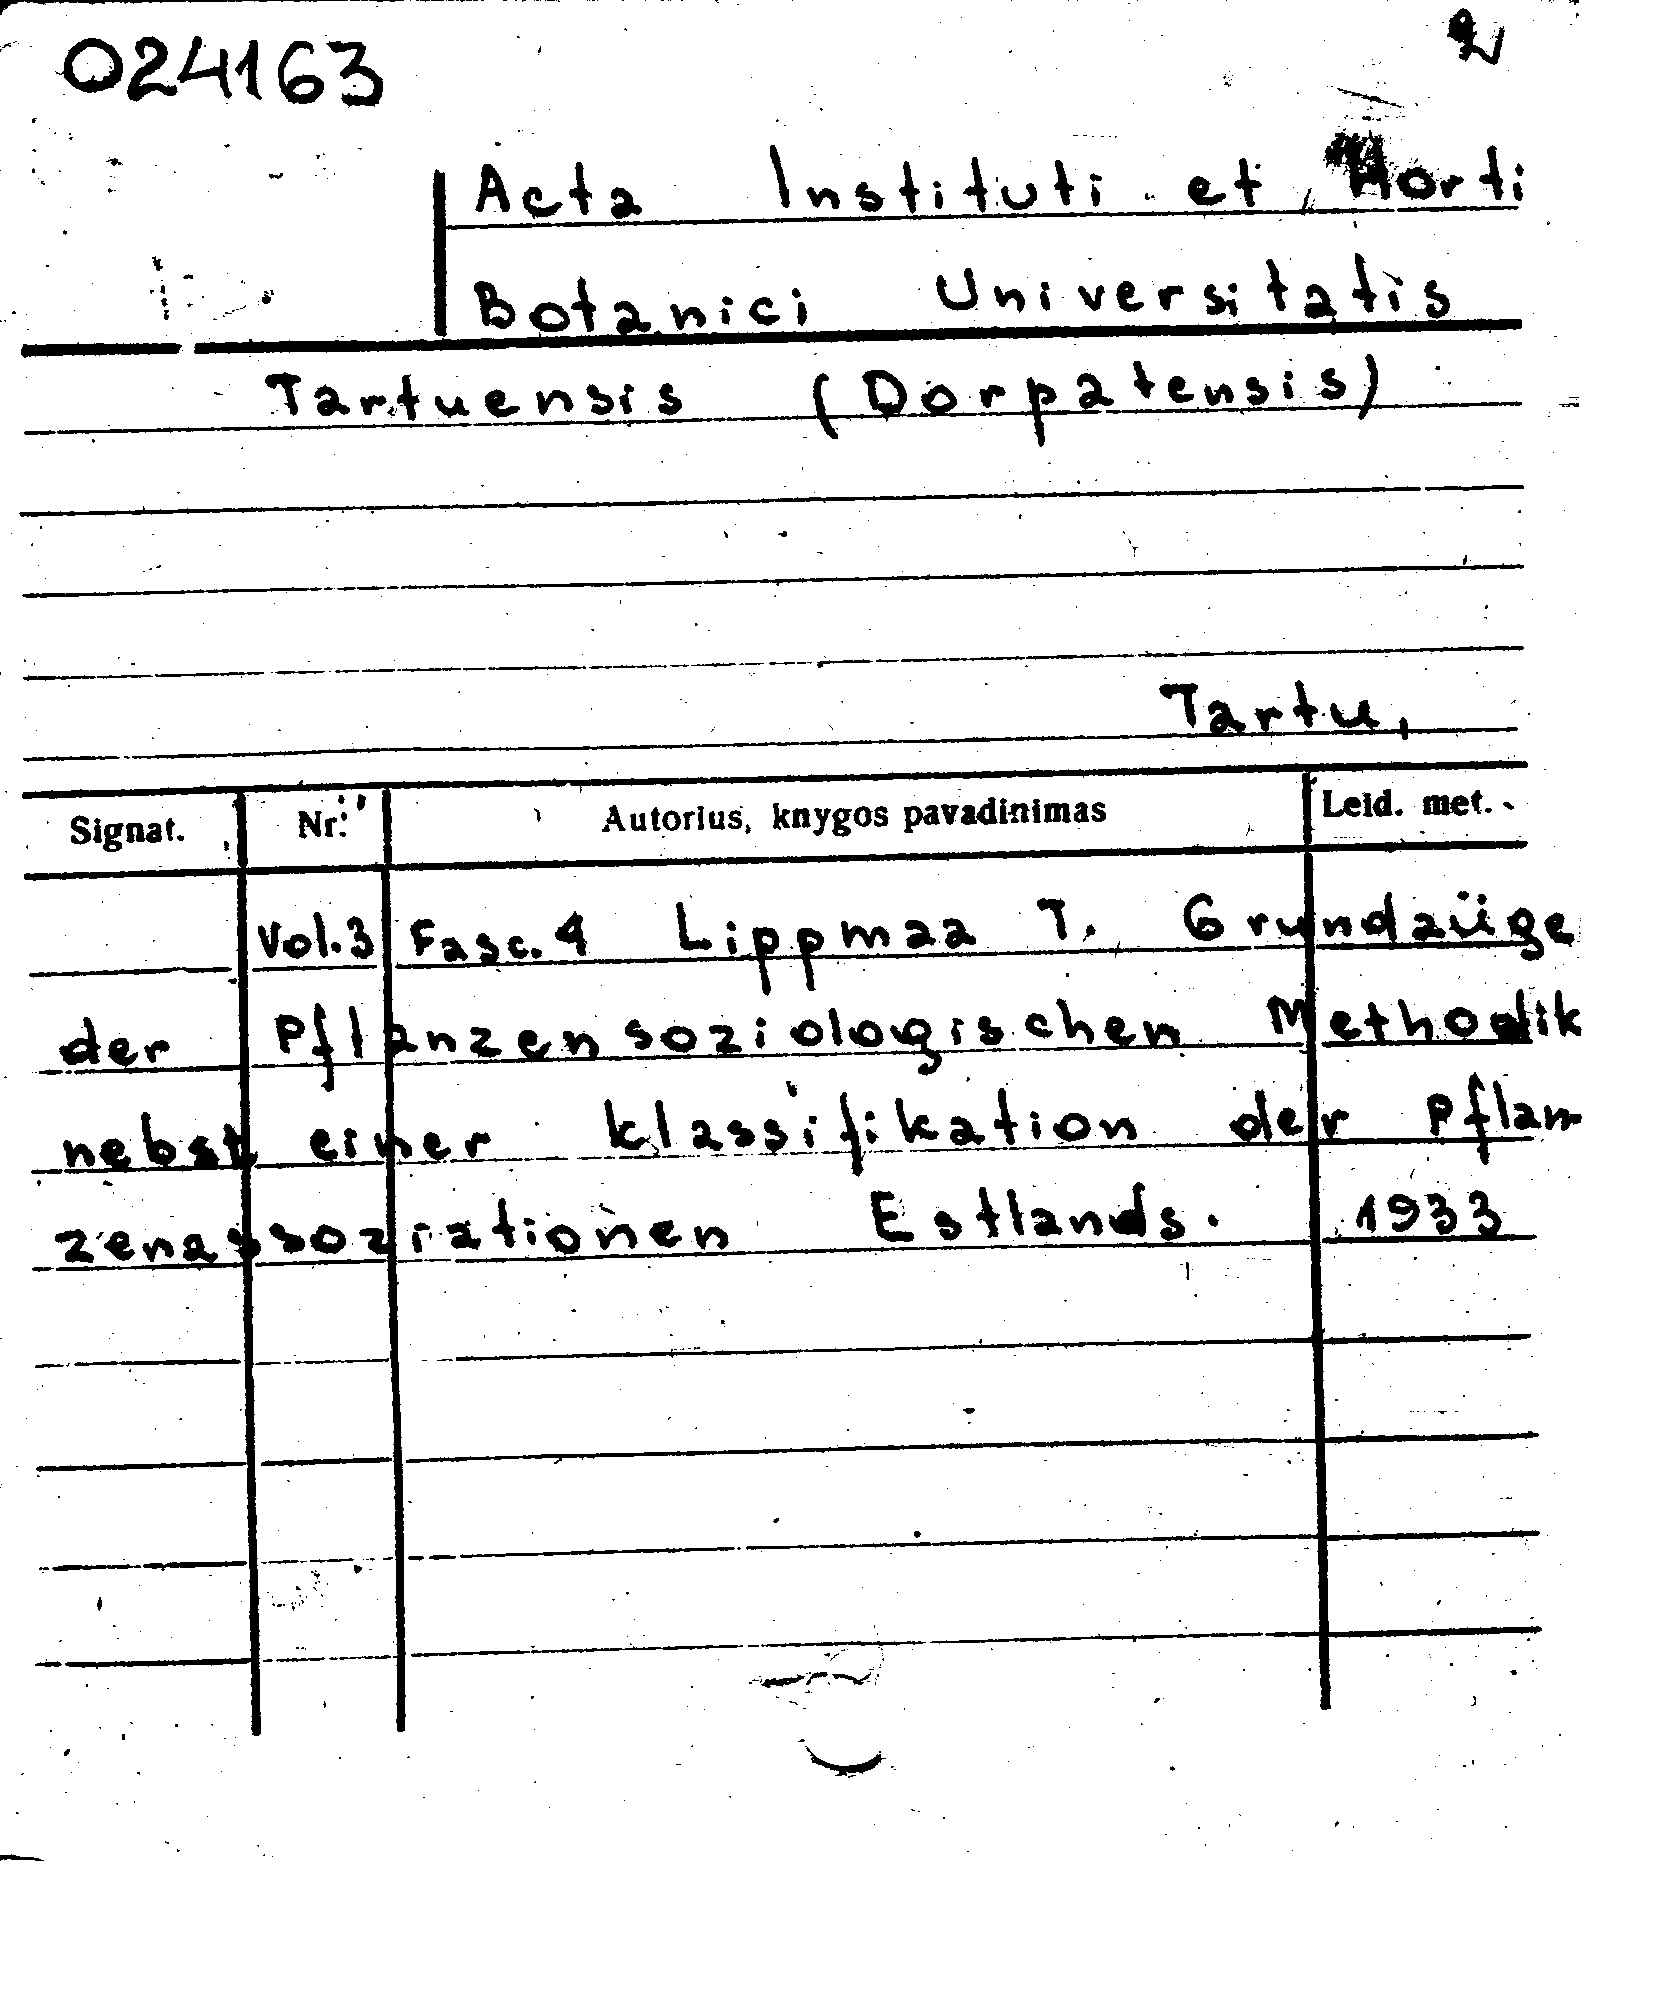 024163
2
Acta Instituti et Horti
Botanici Universitatis
Tartuensis (Dorpatensis)
Tartu,
Signat. Nr. Autorius, knygos pavadinimas Leid. met.
Vol.3 Fasc. 4 Lippmaa T. Grundzüge
der Pflanzensoziologischen Methodik
nebst einer klassifikation der Pflan-
zenassoziationen Estlands. 1933